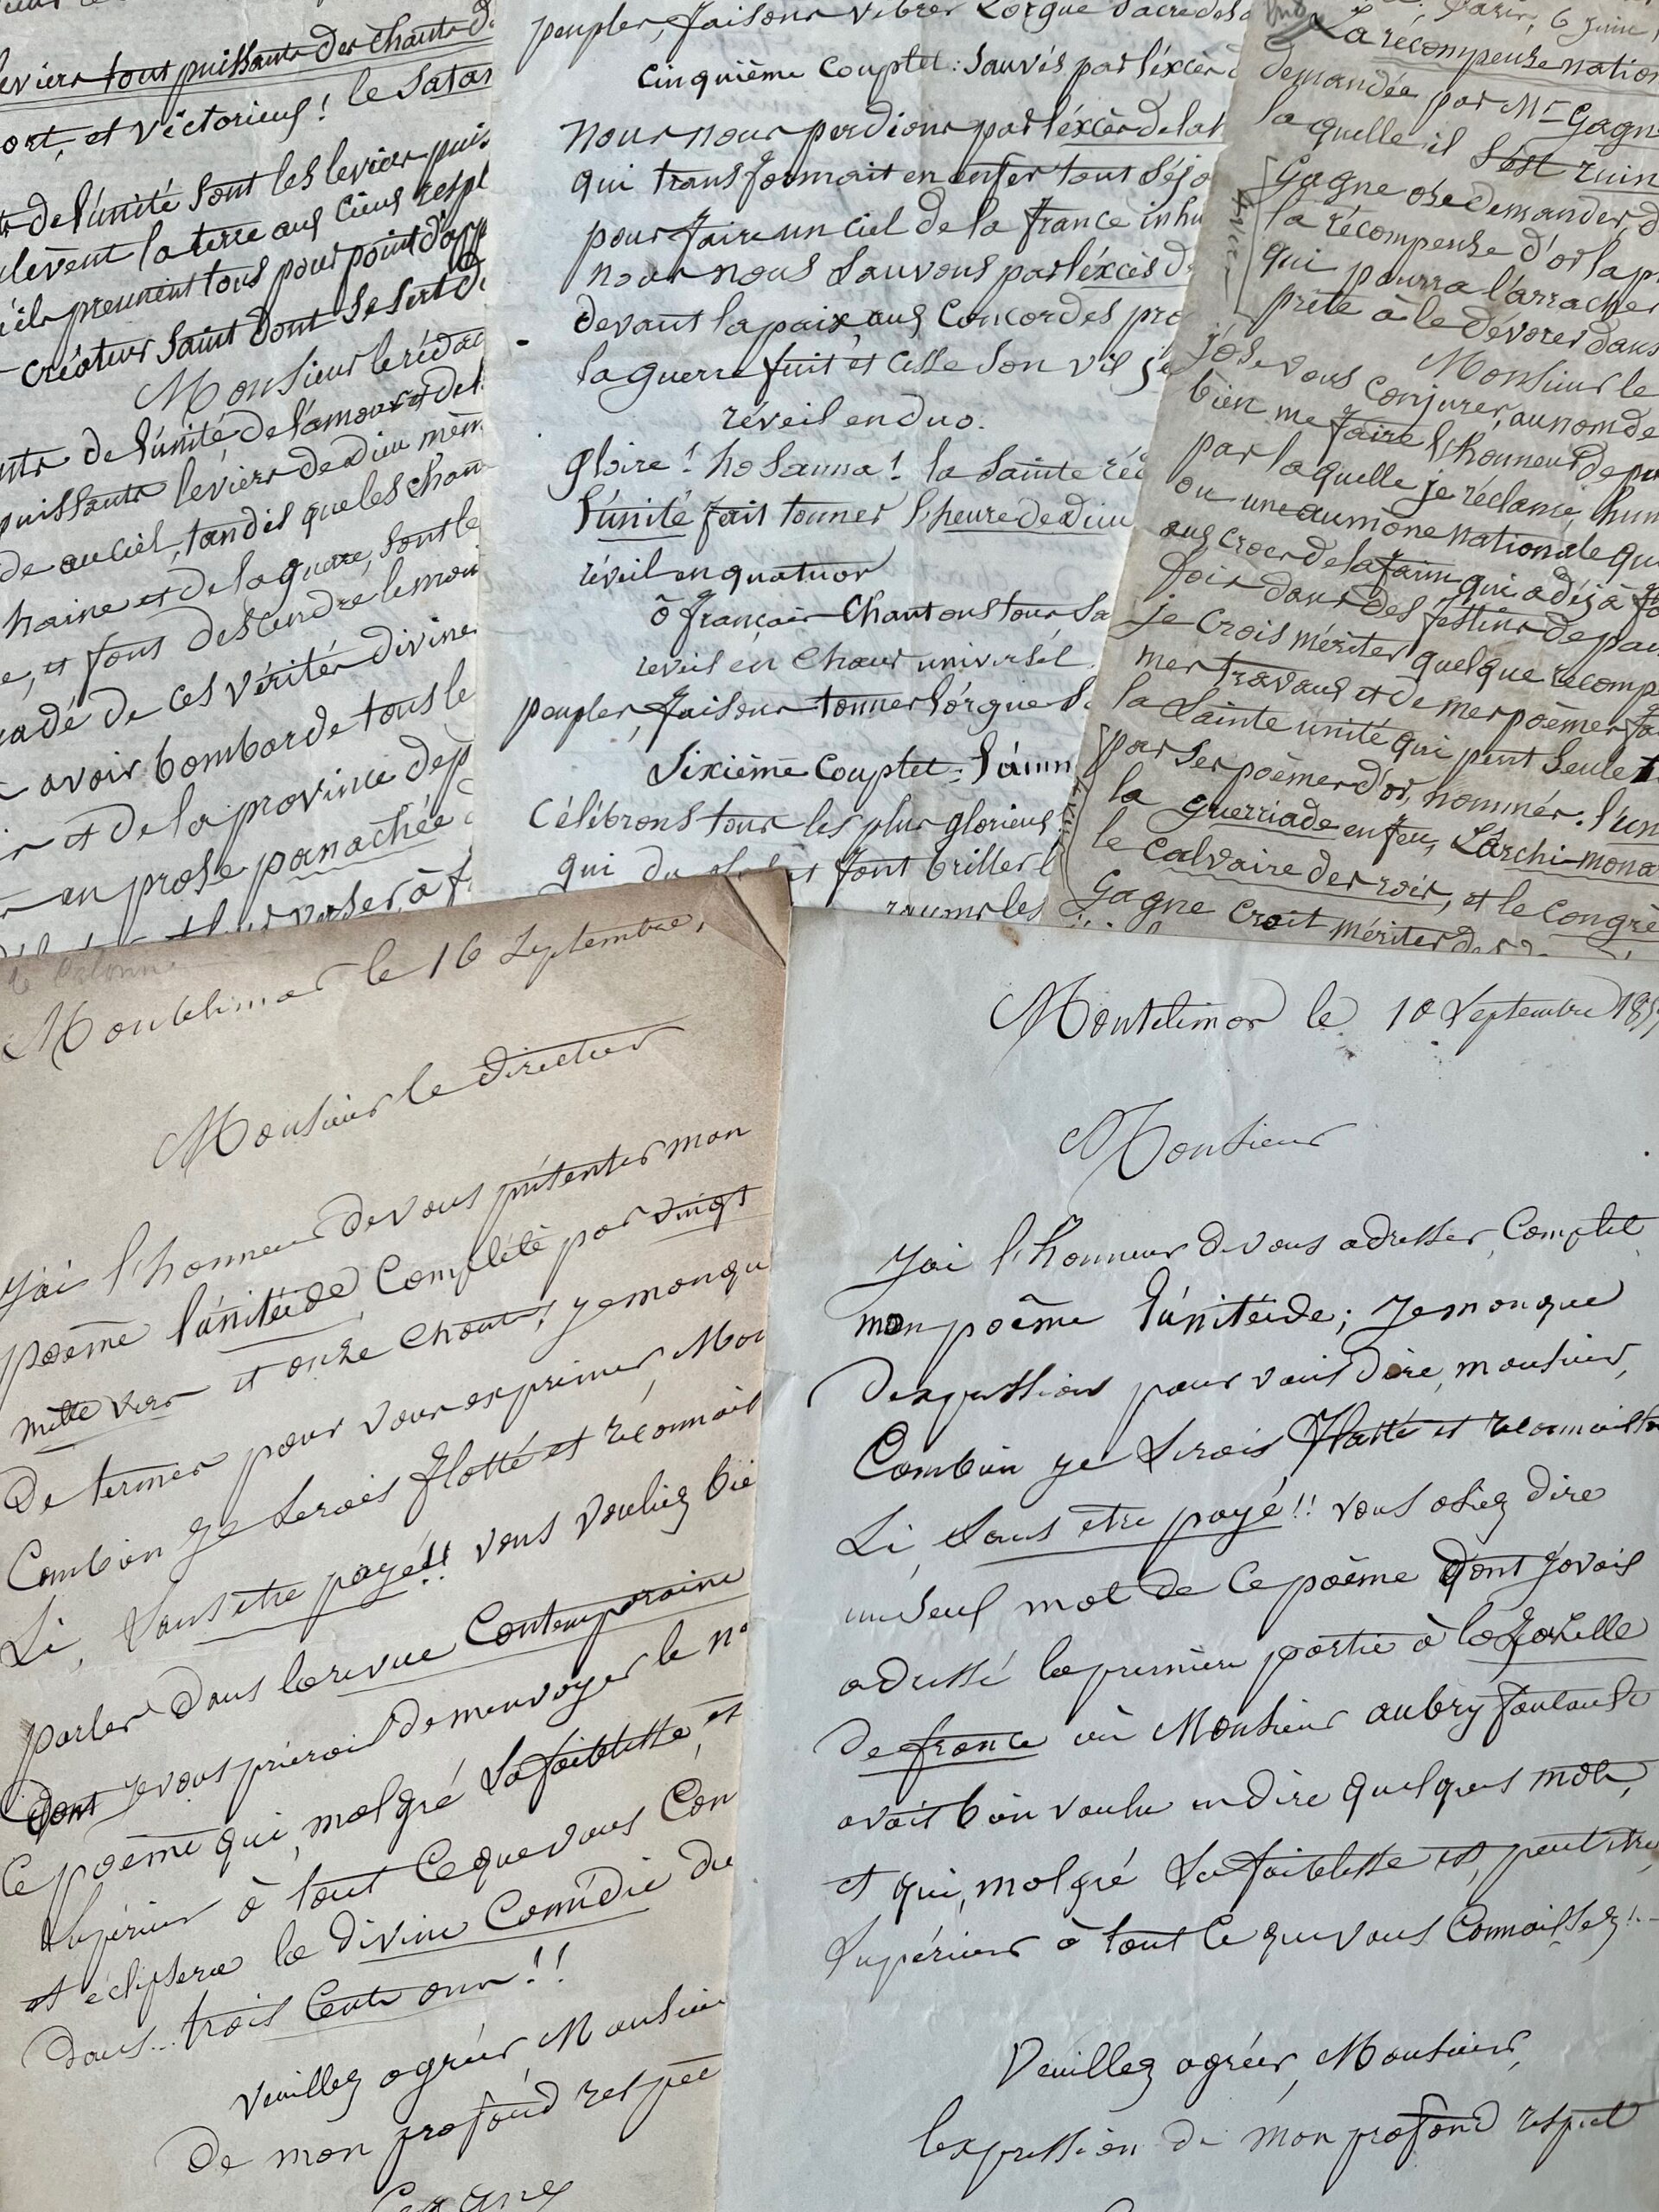 leviers tout puissants des chants d
ort, et victorieux! le Satan
de l'unité sont les leviers puis
ulèvent la terre aux cieux respl
qu'ils prennent tous pour point d'app
créateur saint dont se sert d
Monsieur le rédac
de l'unité, de l'amour et de l
puissants leviers de dieu mêm
de au ciel, tandis que les chan
haine et de la guerre, sont le
e, et font descendre le mon
uadé de ces vérités divine
avoir bombardé tous le
et de la province dep
en prose panachée
peuples, faisons vibrer l'orgue sacré de sa
cinquième couplet: Sauvés par l'éxcès d
nous nous perdions par l'éxcès de la h
qui transformait en enfer tout séjo
pour faire un ciel de la france inhu
nous nous Sauvons par l'éxcès d
devant la paix, aux Concordes pro
la guerre fuit et cesse Son vil j
réveil en duo.
gloire! hosanna! la Sainte ré
l'unité fait tonner l'heure de dieu
réveil en quatuor
ô français Chantons tous Sa
reveil en Choeur universel
peuples, faisons tonner l'orgue S
Sixième Couplet: l'unn
Célébrons tous les plus glorieux
qui du font briller l
Paris, 6 Juin
La récompense nation
demandée par Mr Gagn
la quelle il s'est ruin
Gagne ose demander, d
la récompense d'or la p
qui pourra l'arracher
prête à le dévorer dans
Monsieur le
j'ose vous Conjurer, au nom de
bien me faire l'honneur de pu
par laquelle je réclame, hum
ou une aumône nationale qu
aux crocs de la faim qui a déjà fa
fois dans des festins de pai
je Crois mériter quelque récomp
mes travaux et de mes poèmes fa
la Sainte unité qui peut Seule
par Ses poèmes d'or, nommés: l'un
la guerriade en feu, L'archi-mona
le Calvaire des rois, et le Congrè
Gagne Croit mériter des
Montelimar le 16 Septembre,
Monsieur le directeur
J'ai l'honneur de vous présenter mon
poème l'unitéide Complété par vingt
mille vers et onze Chants! Je manqu
De termes pour vous exprimer, Mon
Combien Je Serais flatté et reconnais
Si, Sans être payé!! vous vouliez bie
parler dans la revue Contemporaine
Dont Je vous prierais de m'envoyer le n°
Ce poème qui, malgré Sa faiblesse, et
Supérieur à tout Ce que vous Con
et éclipsera la divine Comédie du
Dans... trois Cents ans!!
Veuillez agréer, Monsieur
De mon profond respec
Gagne
Montelimar le 10 Septembre 185
Monsieur
J'ai l'honneur de vous adresser, Complet
mon poème l'unitéide; Je manque
D'expressions pour vous dire, monsieur,
Combien Je Serais flatté et reconnaissan
Si, Sans être payé!! vous osiez dire
un Seul mot de Ce poème dont J'avais
adressé la première partie à la gazette
De france où Monsieur aubry foucault
avait bien voulu en dire quelques mots,
et qui, malgré Sa faiblesse est, peut être,
Supérieur à tout Ce que vous Connaissez!..
Veuillez agréer, Monsieur,
l'expression de mon profond respect